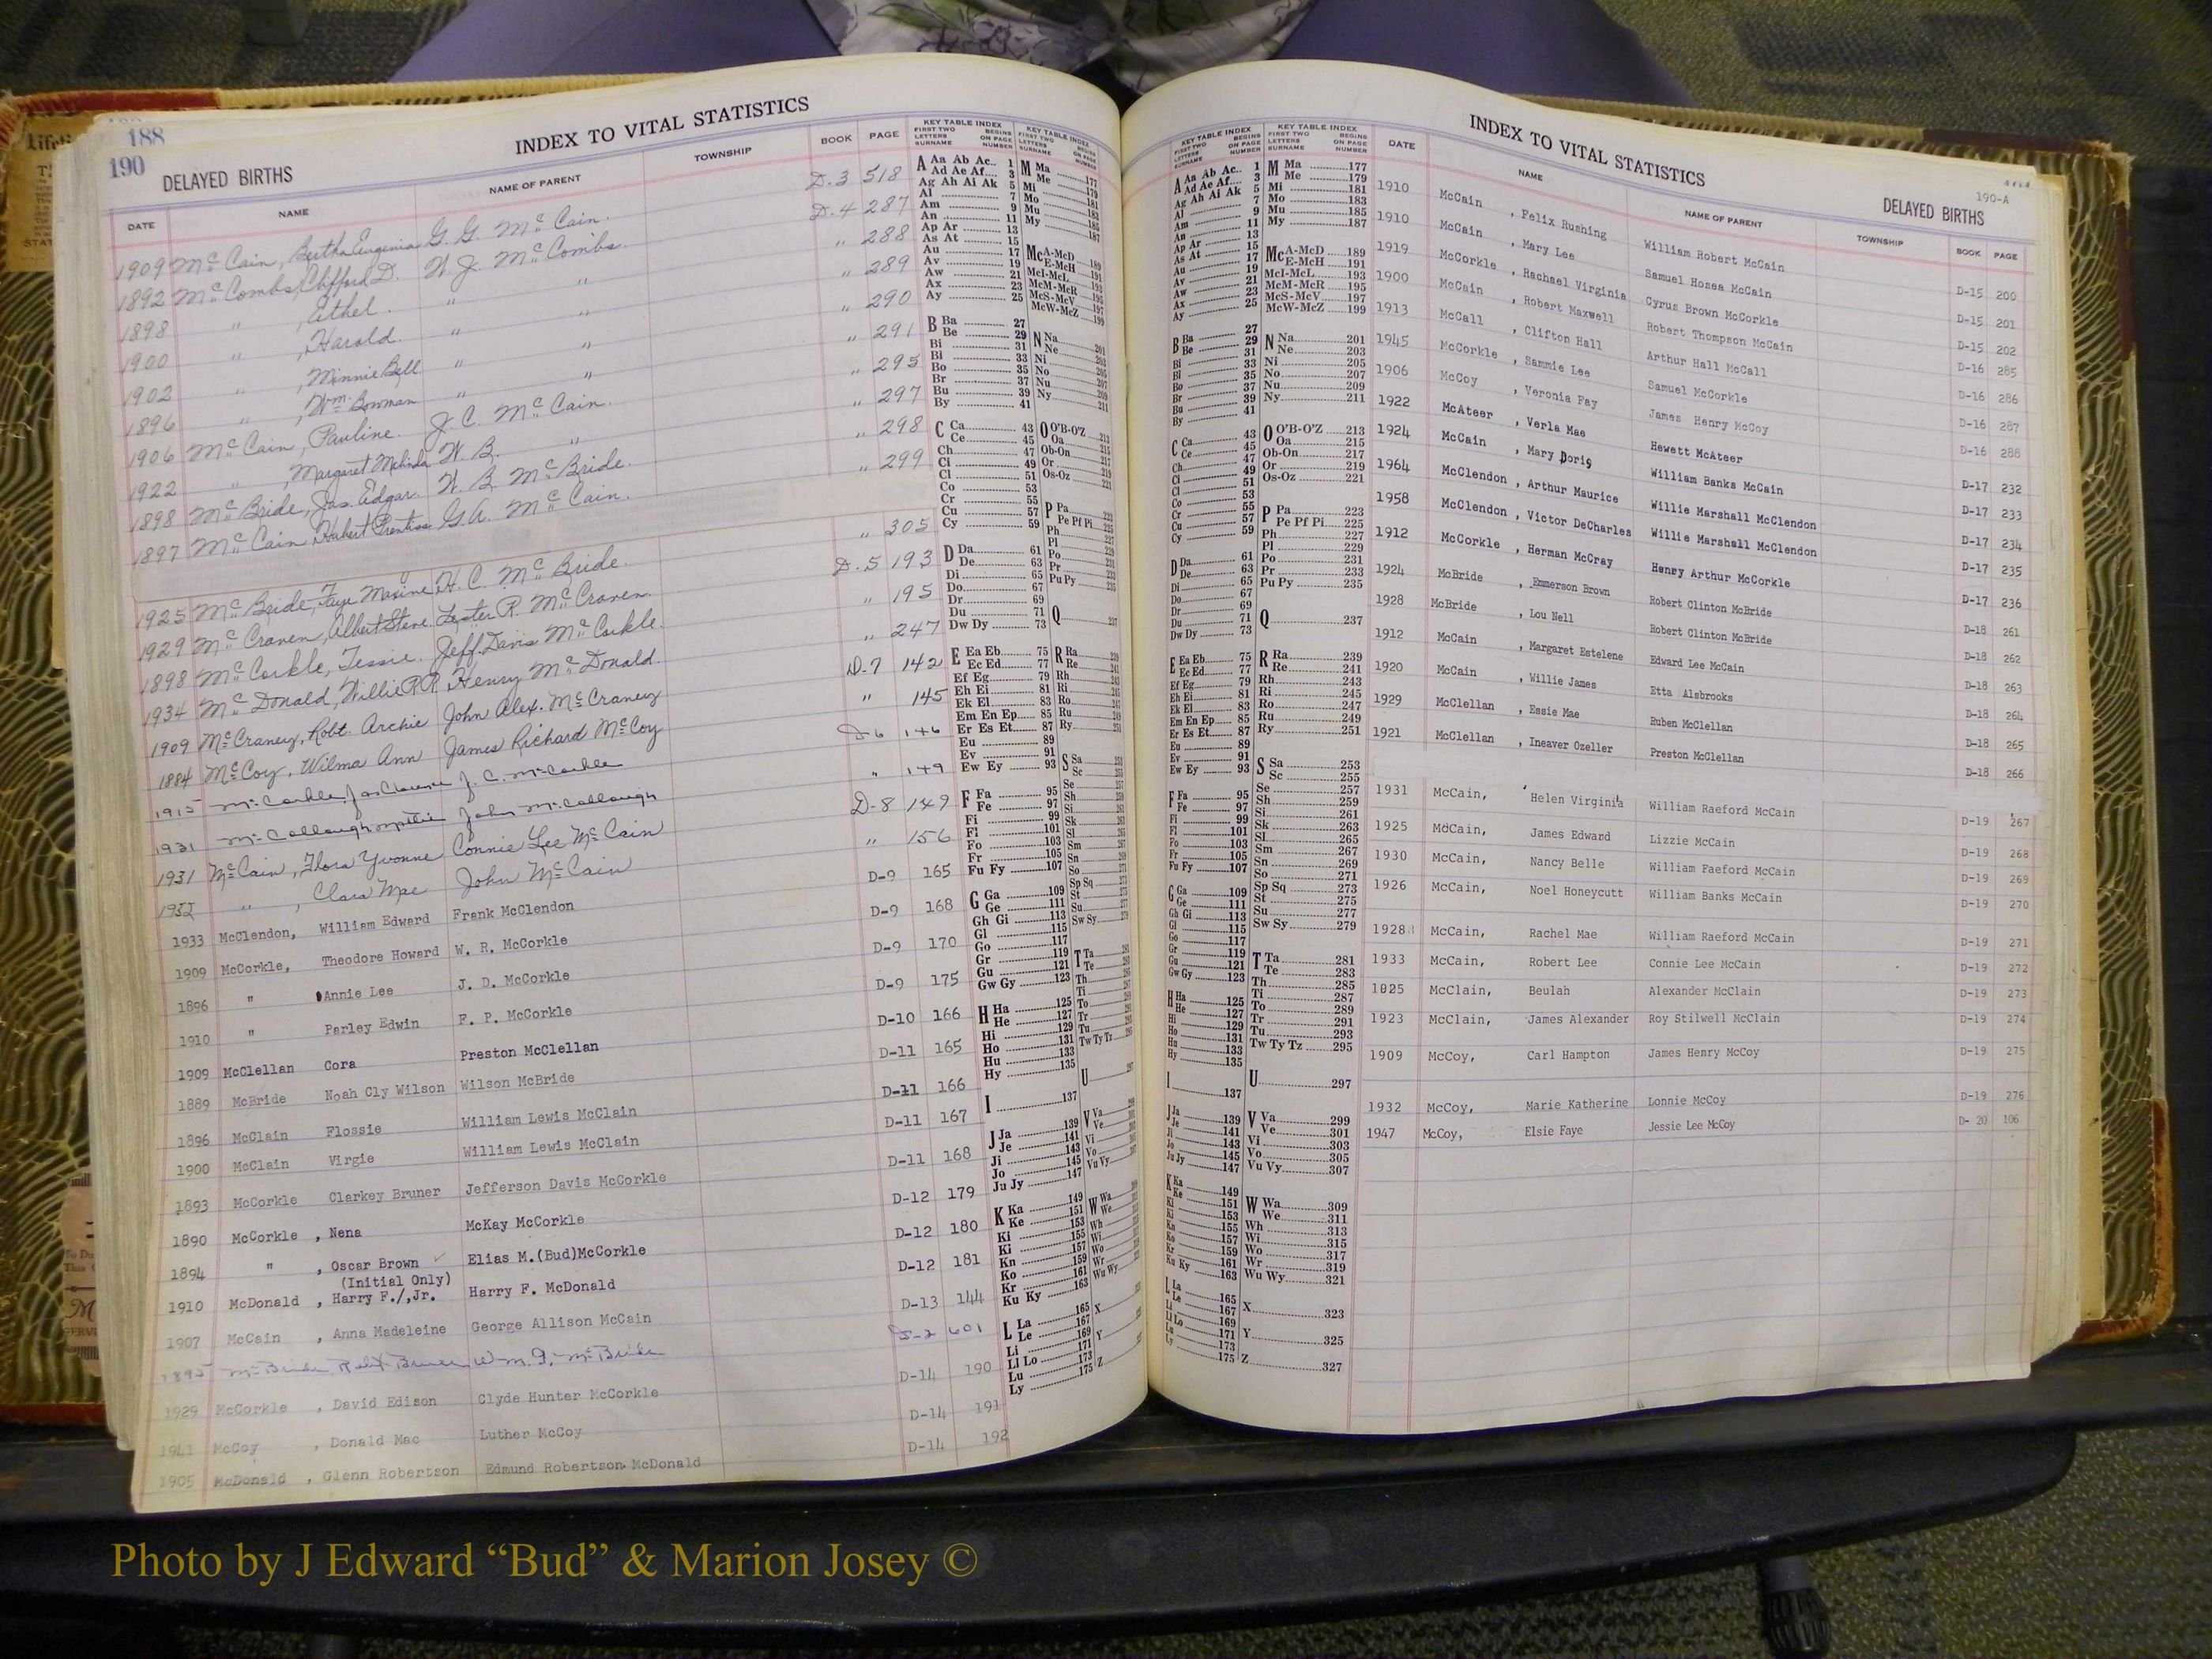 188
190
DELAYED BIRTHS
INDEX TO VITAL STATISTICS
DATE NAME NAME OF PARENT TOWNSHIP BOOK PAGE
1909 McCain, Bertha Eugenia G. G. McCain. D.3 518
1892 McCombs, Clifford D. W. J. McCombs. D.4 287
1898 " , Ethel. " " " 288
1900 " , Harold. " " " 289
1902 " , Minnie Bell " " " 290
1896 " , Wm. Bowman " " " 291
1906 McCain, Pauline. J. C. McCain. " 295
1922 " , Margaret Melinda W. B. " " 297
1898 McBride, Jas. Edgar. W. B. McBride. " 298
1897 McCain, Hubert Prentiss G. A. McCain. " 299
1925 McBride, Faye Maxine H. C. McBride. " 305
1929 McCraven, Albert Steve. Lester R. McCraven. D.5 193
1898 McCorkle, Tessie. Jeff. Davis McCorkle. " 195
1934 McDonald, Willie R.R. Henry McDonald. " 247
1909 McCraney, Robt. Archie John Alex. McCraney D-7 142
1884 McCoy, Wilma Ann James Richard McCoy " 145
1915 McCorkle, Jas Clarence J. C. McCorkle D6 146
1931 McCollough John McCollough " 149
1931 McCain, Flora Yvonne Connie Lee McCain D-8 149
1932 " , Clara Mae John McCain " 156
1933 McClendon, William Edward Frank McClendon D-9 165
1909 McCorkle, Theodore Howard W. R. McCorkle D-9 168
1896 " Annie Lee J. D. McCorkle D-9 170
1910 " Parley Edwin F. P. McCorkle D-9 175
1909 McClellan Cora Preston McClellan D-10 166
1889 McBride Noah Cly Wilson Wilson McBride D-11 165
1896 McClain Flossie William Lewis McClain D-11 166
1900 McClain Virgie William Lewis McClain D-11 167
1893 McCorkle Clarkey Bruner Jefferson Davis McCorkle D-11 168
1890 McCorkle , Nena McKay McCorkle D-12 179
1894 " , Oscar Brown Elias M.(Bud)McCorkle D-12 180
(Initial Only)
1910 McDonald , Harry F./,Jr. Harry F. McDonald D-12 181
1907 McCain , Anna Madeleine George Allison McCain D-13 144
1895 McBride, Robt. Bruner Wm. I. McBride D-2 601
1929 McCorkle , David Edison Clyde Hunter McCorkle D-14 190
1941 McCoy , Donald Mac Luther McCoy D-14 191
1905 McDonald , Glenn Robertson Edmund Robertson McDonald D-14 192
KEY TABLE INDEX
FIRST TWO LETTERS SURNAME BEGINS ON PAGE NUMBER
A Aa Ab Ac.. 1
Ad Ae Af.... 3
Ag Ah Ai Ak 5
Al 7
Am 9
An 11
Ap Ar 13
As At 15
Au 17
Av 19
Aw 21
Ax 23
Ay 25
B Ba 27
Be 29
Bi 31
Bl 33
Bo 35
Br 37
Bu 39
By 41
C Ca 43
Ce 45
Ch 47
Ci 49
Cl 51
Co 53
Cr 55
Cu 57
Cy 59
D Da 61
De 63
Di 65
Do 67
Dr 69
Du 71
Dw Dy 73
E Ea Eb 75
Ec Ed 77
Ef Eg 79
Eh Ei 81
Ek El 83
Em En Ep 85
Er Es Et 87
Eu 89
Ev 91
Ew Ey 93
F Fa 95
Fe 97
Fi 99
Fl 101
Fo 103
Fr 105
Fu Fy 107
G Ga 109
Ge 111
Gh Gi 113
Gl 115
Go 117
Gr 119
Gu 121
Gw Gy 123
H Ha 125
He 127
Hi 129
Ho 131
Hu 133
Hy 135
I 137
J Ja 139
Je 141
Ji 143
Jo 145
Ju Jy 147
K Ka 149
Ke 151
Ki 153
Ki 155
Kn 157
Ko 159
Kr 161
Ku Ky 163
L La 165
Le 167
Li 169
Ll Lo 171
Lu 173
Ly 175
INDEX TO VITAL STATISTICS
190-A
DELAYED BIRTHS
KEY TABLE INDEX
FIRST TWO LETTERS SURNAME BEGINS ON PAGE NUMBER
M Ma 177
Me 179
Mi 181
Mo 183
Mu 185
My 187
Mc A-McD 189
E-McH 191
McI-McL 193
McM-McR 195
McS-McV 197
McW-McZ 199
N Na 201
Ne 203
Ni 205
No 207
Nu 209
Ny 211
O O'B-O'Z 213
Oa 215
Ob-On 217
Or 219
Os-Oz 221
P Pa 223
Pe Pf Pi 225
Ph 227
Pl 229
Po 231
Pr 233
Pu Py 235
Q 237
R Ra 239
Re 241
Rh 243
Ri 245
Ro 247
Ru 249
Ry 251
S Sa 253
Sc 255
Se 257
Sh 259
Si 261
Sk 263
Sl 265
Sm 267
Sn 269
So 271
Sp Sq 273
St 275
Su 277
Sw Sy 279
T Ta 281
Te 283
Th 285
Ti 287
To 289
Tr 291
Tu 293
Tw Ty Tz 295
U 297
V Va 299
Ve 301
Vi 303
Vo 305
Vu Vy 307
W Wa 309
We 311
Wh 313
Wi 315
Wo 317
Wr 319
Wu Wy 321
X 323
Y 325
Z 327
DATE NAME NAME OF PARENT TOWNSHIP BOOK PAGE
1910 McCain , Felix Rushing William Robert McCain D-15 200
1910 McCain , Mary Lee Samuel Hosea McCain D-15 201
1919 McCorkle , Rachael Virginia Cyrus Brown McCorkle D-15 202
1900 McCain , Robert Maxwell Robert Thompson McCain D-16 285
1913 McCall , Clifton Hall Arthur Hall McCall D-16 286
1945 McCorkle , Sammie Lee Samuel McCorkle D-16 287
1906 McCoy , Veronia Fay James Henry McCoy D-16 288
1922 McAteer , Verla Mae Hewett McAteer D-17 232
1924 McCain , Mary Doris William Banks McCain D-17 233
1964 McClendon , Arthur Maurice Willie Marshall McClendon D-17 234
1958 McClendon , Victor DeCharles Willie Marshall McClendon D-17 235
1912 McCorkle , Herman McCray Henry Arthur McCorkle D-17 236
1924 McBride , Emmerson Brown Robert Clinton McBride D-18 261
1928 McBride , Lou Nell Robert Clinton McBride D-18 262
1912 McCain , Margaret Estelene Edward Lee McCain D-18 263
1920 McCain , Willie James Etta Alsbrooks D-18 264
1929 McClellan , Essie Mae Ruben McClellan D-18 265
1921 McClellan , Ineaver Ozeller Preston McClellan D-18 266
1931 McCain, Helen Virginia William Raeford McCain D-19 267
1925 McCain, James Edward Lizzie McCain D-19 268
1930 McCain, Nancy Belle William Faeford McCain D-19 269
1926 McCain, Noel Honeycutt William Banks McCain D-19 270
1928 McCain, Rachel Mae William Raeford McCain D-19 271
1933 McCain, Robert Lee Connie Lee McCain D-19 272
1925 McClain, Beulah Alexander McClain D-19 273
1923 McClain, James Alexander Roy Stilwell McClain D-19 274
1909 McCoy, Carl Hampton James Henry McCoy D-19 275
1932 McCoy, Marie Katherine Lonnie McCoy D-19 276
1947 McCoy, Elsie Faye Jessie Lee McCoy D- 20 106
Photo by J Edward “Bud” & Marion Josey ©